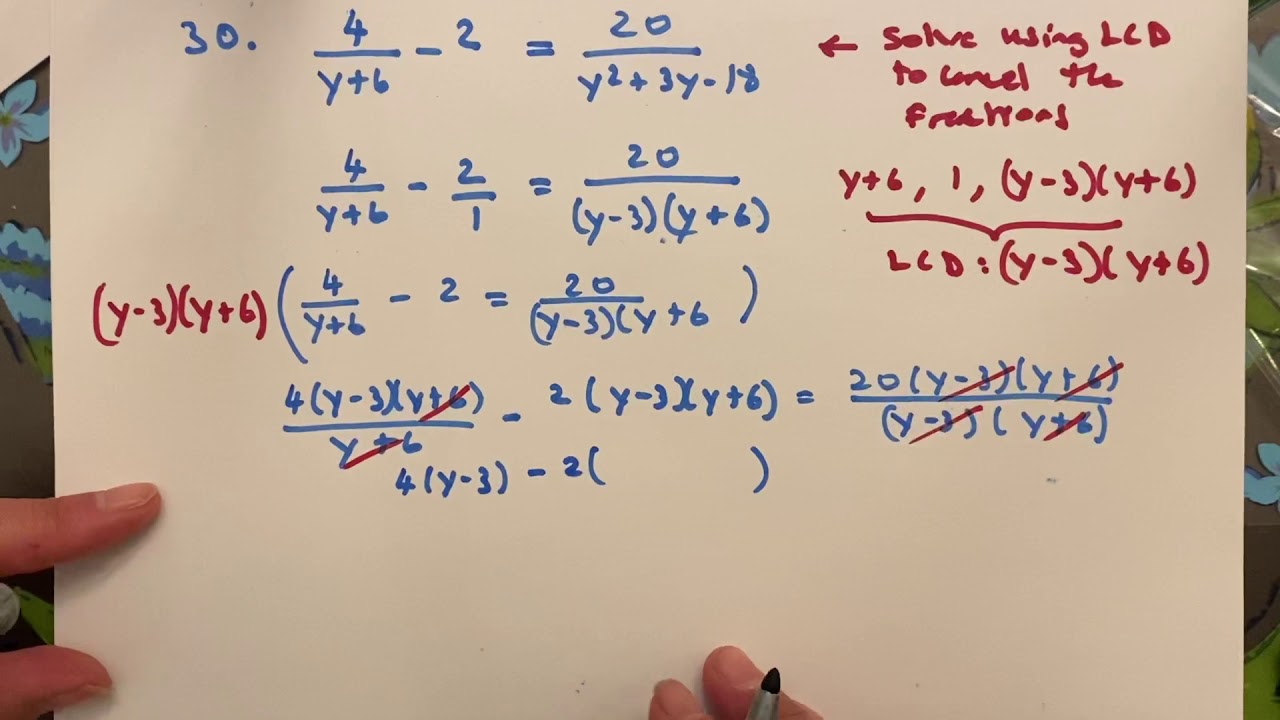 30. 4/(y+6) - 2 = 20/(y²+3y-18) ← Solve using LCD
to cancel the
fractions
4/(y+6) - 2/1 = 20/((y-3)(y+6)) y+6, 1, (y-3)(y+6)
LCD: (y-3)(y+6)
(y-3)(y+6) ( 4/(y+6) - 2 = 20/((y-3)(y+6 )
4(y-3)(y+6)/(y+6) - 2(y-3)(y+6) = 20(y-3)(y+6)/((y-3)(y+6))
4(y-3) - 2( )